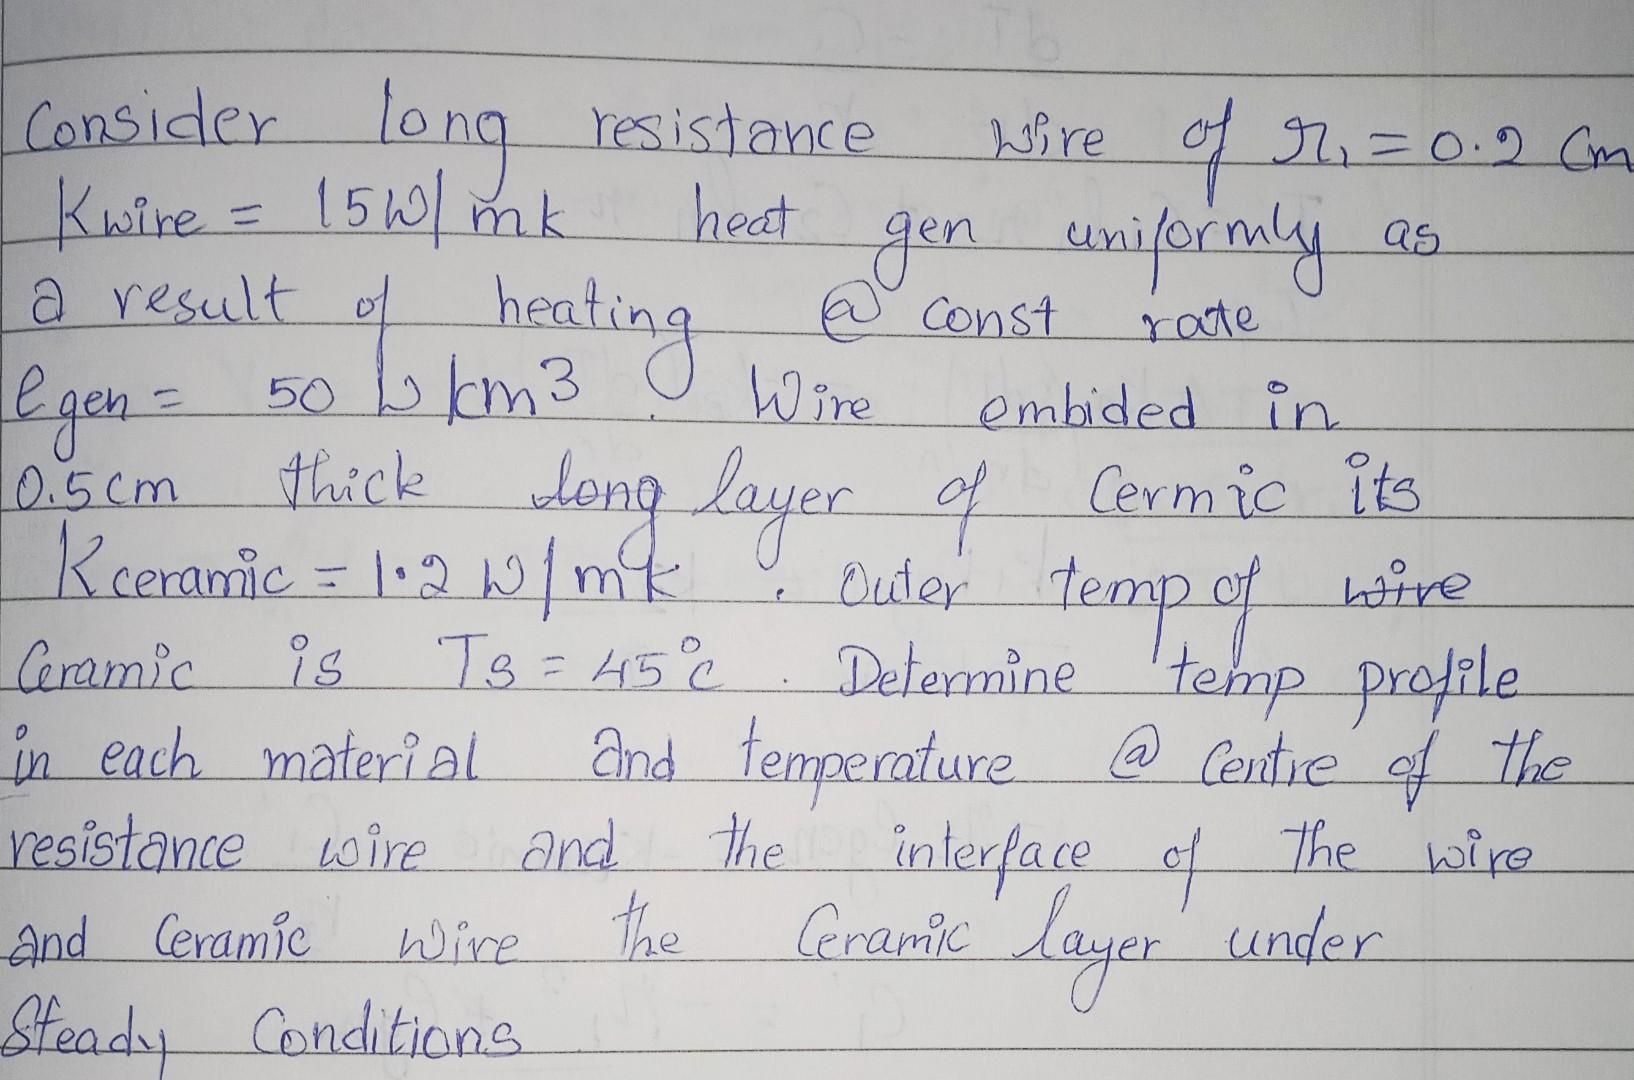 Consider long resistance wire of r₁ = 0.2 cm
Kwire = 15W/mk heat gen uniformly as
a result of heating @ const rate
egen = 50 W/cm3. Wire embided in
0.5cm thick long layer of Cermic its
Kceramic = 1.2 W/mk. Outer temp of wire
Ceramic is Ts = 45°c. Determine temp profile
in each material and temperature @ Centre of the
resistance wire and the interface of the wire
and Ceramic wire the Ceramic layer under
Steady Conditions